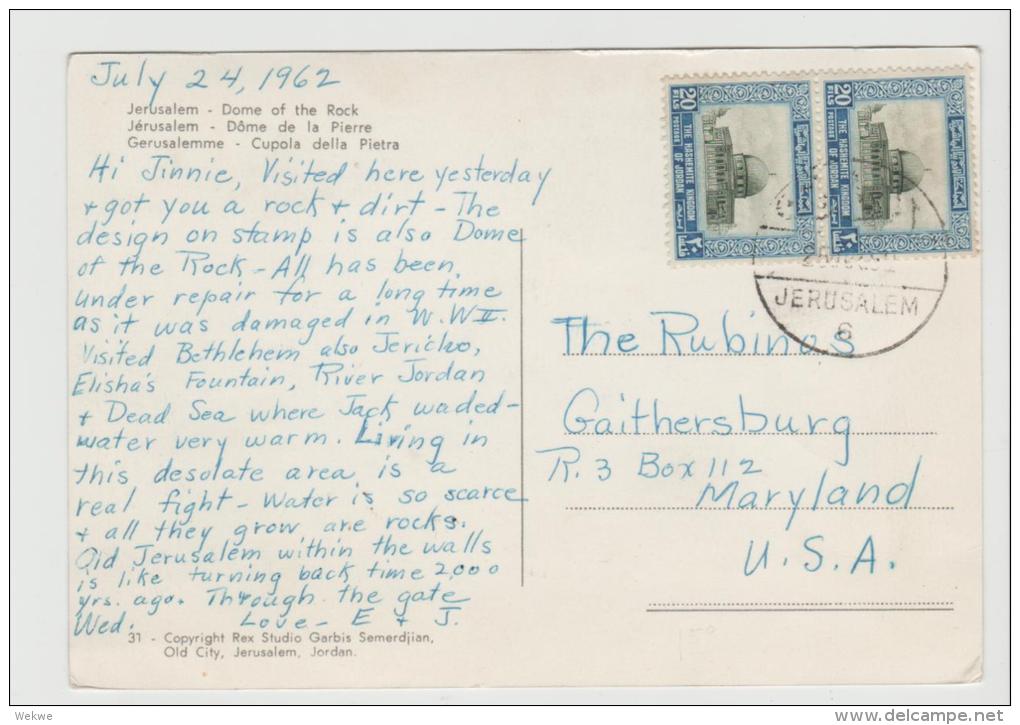 July 24, 1962
Jerusalem - Dome of the Rock
Jérusalem - Dôme de la Pierre
Gerusalemme - Cupola della Pietra
Hi Jinnie, Visited here yesterday
+ got you a rock + dirt - The
design on stamp is also Dome
of the Rock - All has been
under repair for a long time
as it was damaged in W.W II.
Visited Bethlehem also Jericho,
Elisha's Fountain, River Jordan
+ Dead Sea where Jack waded -
water very warm. Living in
this desolate area is a
real fight - Water is so scarce
+ all they grow are rocks.
Old Jerusalem within the walls
is like turning back time 2,000
yrs. ago. Through the gate
Wed. Love - E + J.
31 - Copyright Rex Studio Garbis Semerdjian,
Old City, Jerusalem, Jordan.
20
FILS
POSTAGE
THE HASHEMITE KINGDOM
OF JORDAN
٢٠
20
FILS
POSTAGE
THE HASHEMITE KINGDOM
OF JORDAN
٢٠
JERUSALEM
6
The Rubinos
Gaithersburg
R. 3 Box 112
Maryland
U.S.A.
Wekwe
www.delcampe.net